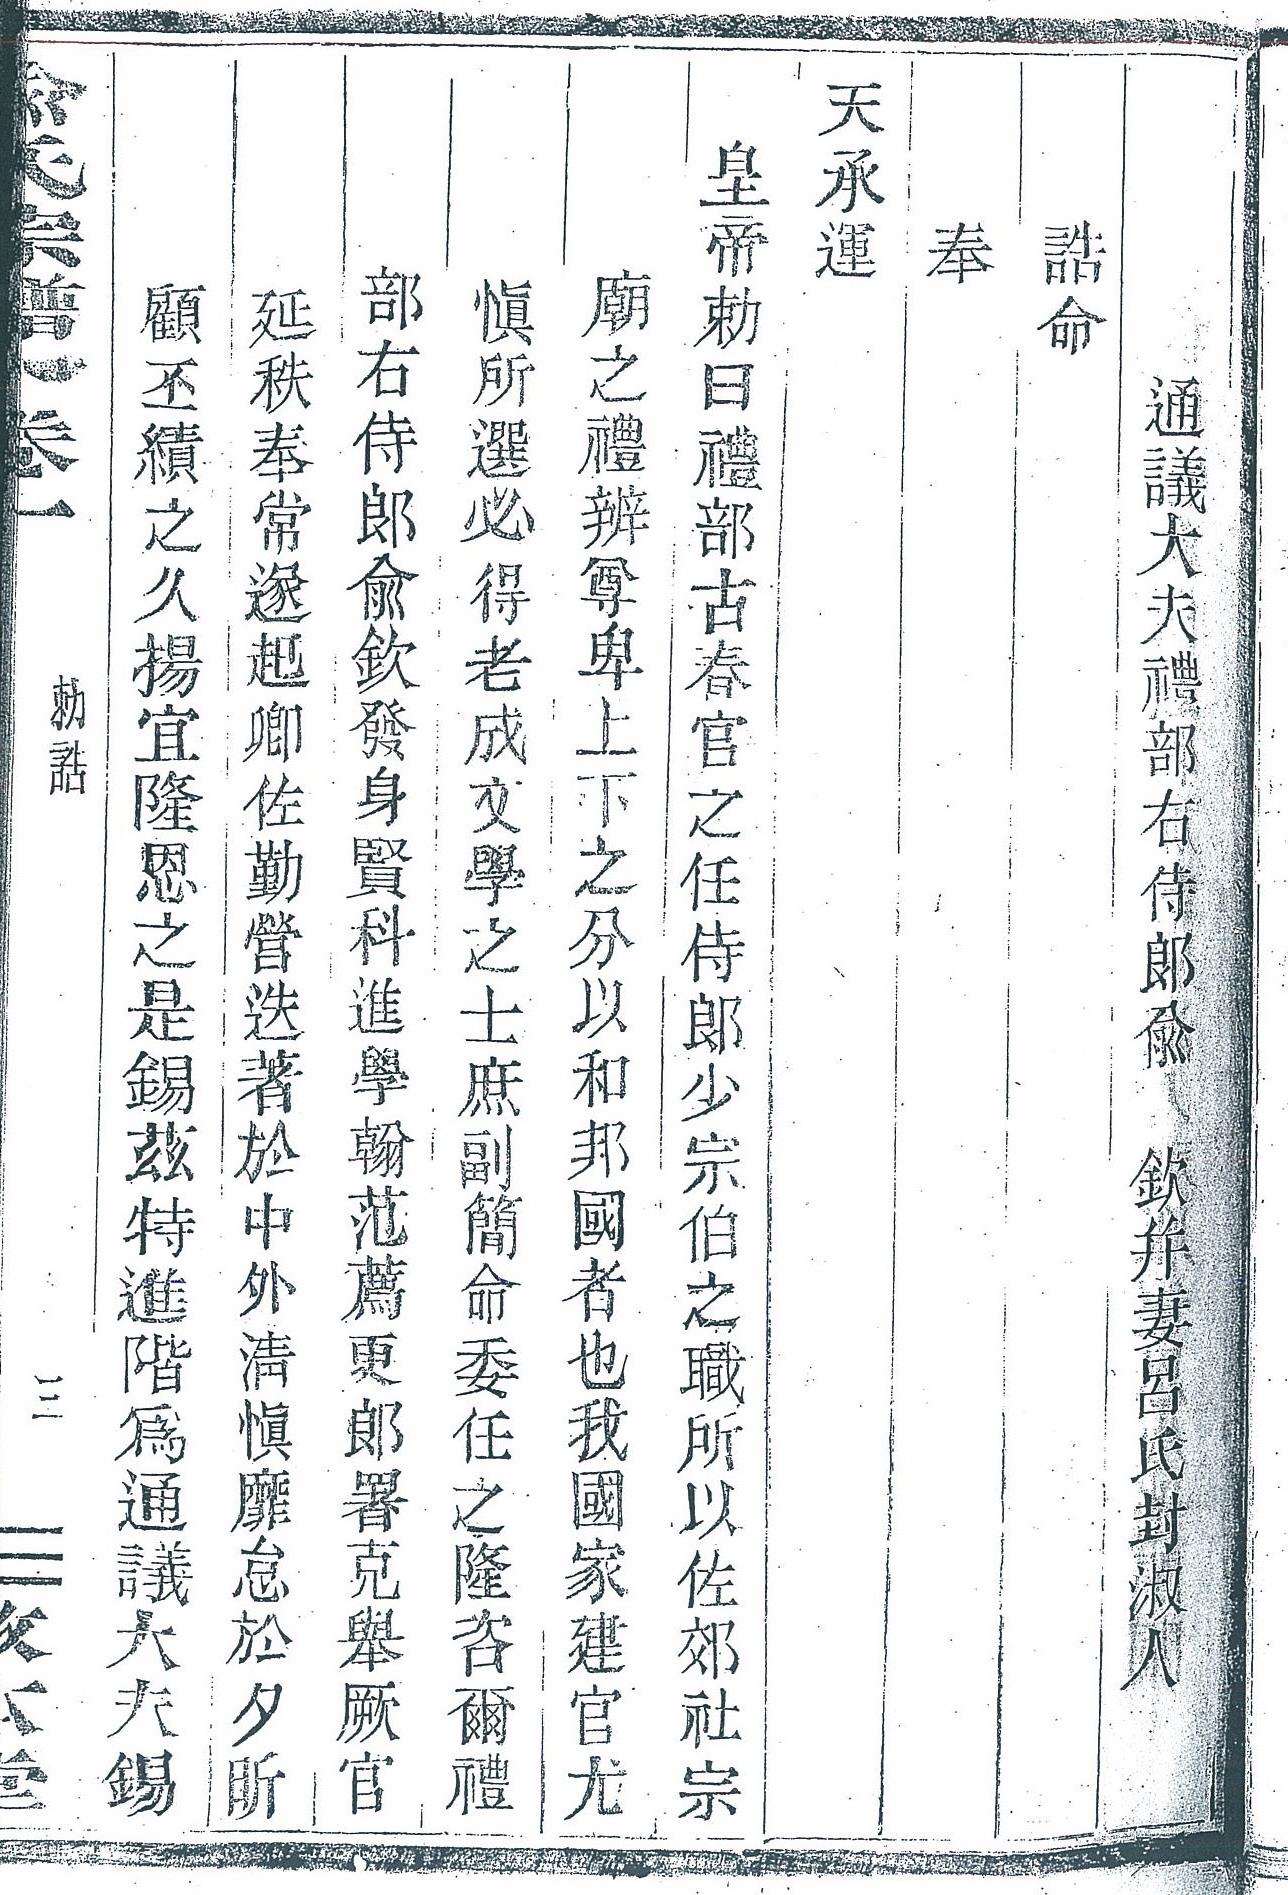 通議大夫禮部右侍郎兪 欽并妻呂氏封淑人
誥命
奉
天承運
皇帝勅曰禮部古春官之任侍郎少宗伯之職所以佐郊社宗
廟之禮辨尊卑上下之分以和邦國者也我國家建官尤
愼所選必得老成文學之士庶副簡命委任之隆咨爾禮
部右侍郎兪欽發身賢科進學翰范薦更郎署克舉厥官
延秩奉常遂起卿佐勤營迭著於中外淸愼靡怠於夕昕
顧丕績之久揚宜隆恩之是錫茲特進階爲通議大夫錫
兪氏宗譜 卷一
勅誥
三
敘太堂